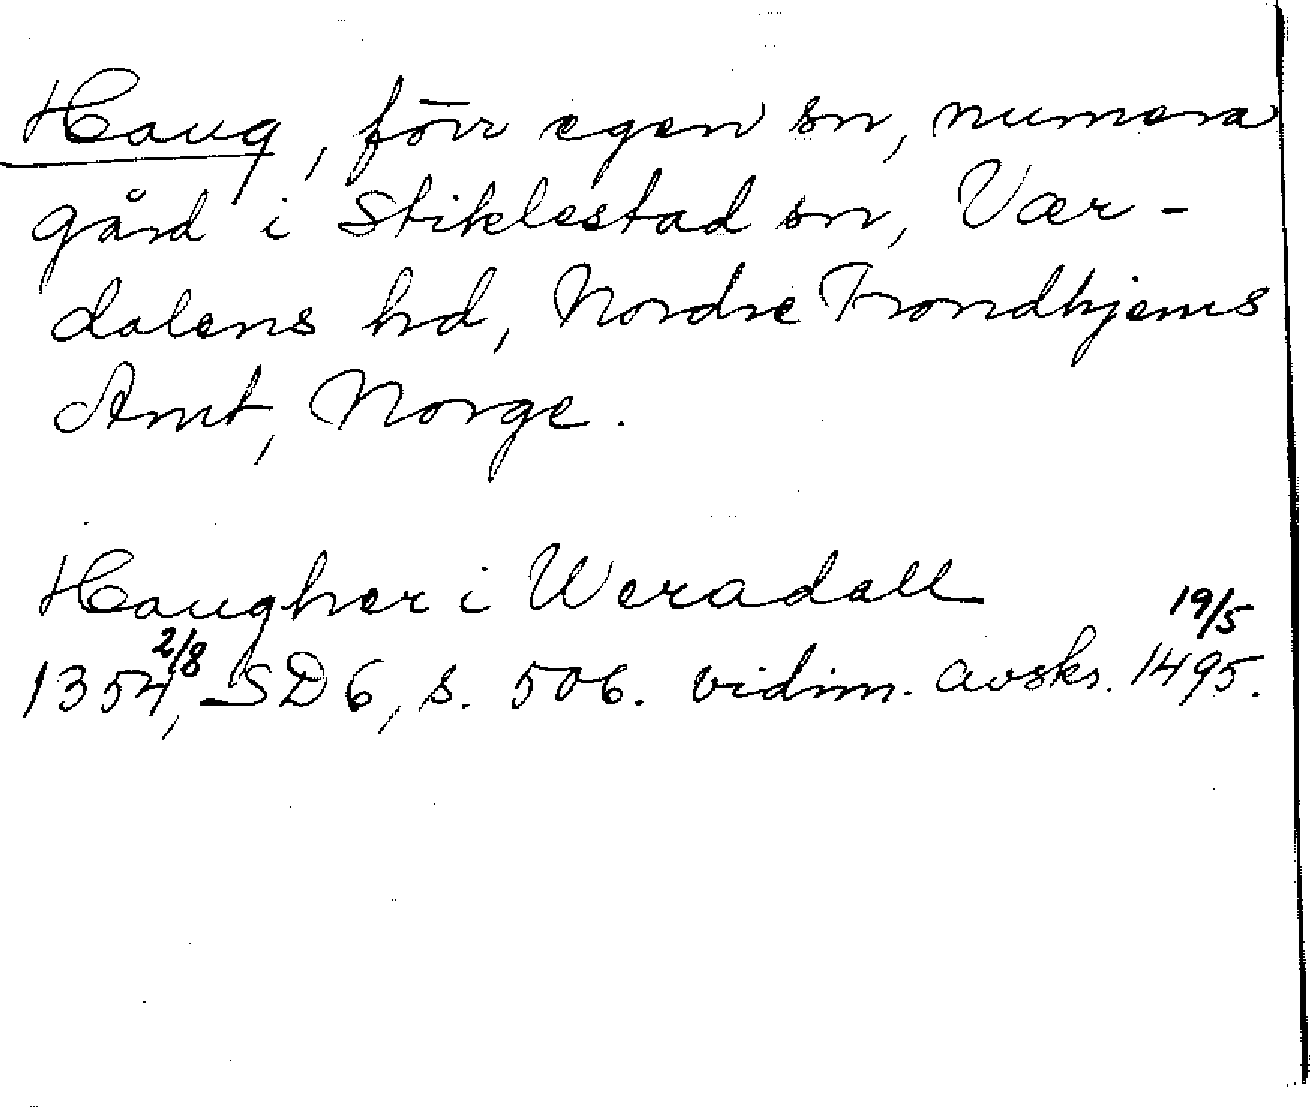 Haug, förr egen sn, numera
gård i Stiklestad sn, Vær-
dalens hd, Nordre Trondhjems
Amt, Norge.
Haugher i Weradall
1354 2/8, SD 6, s. 506. vidim. avskr. 19/5 1495.